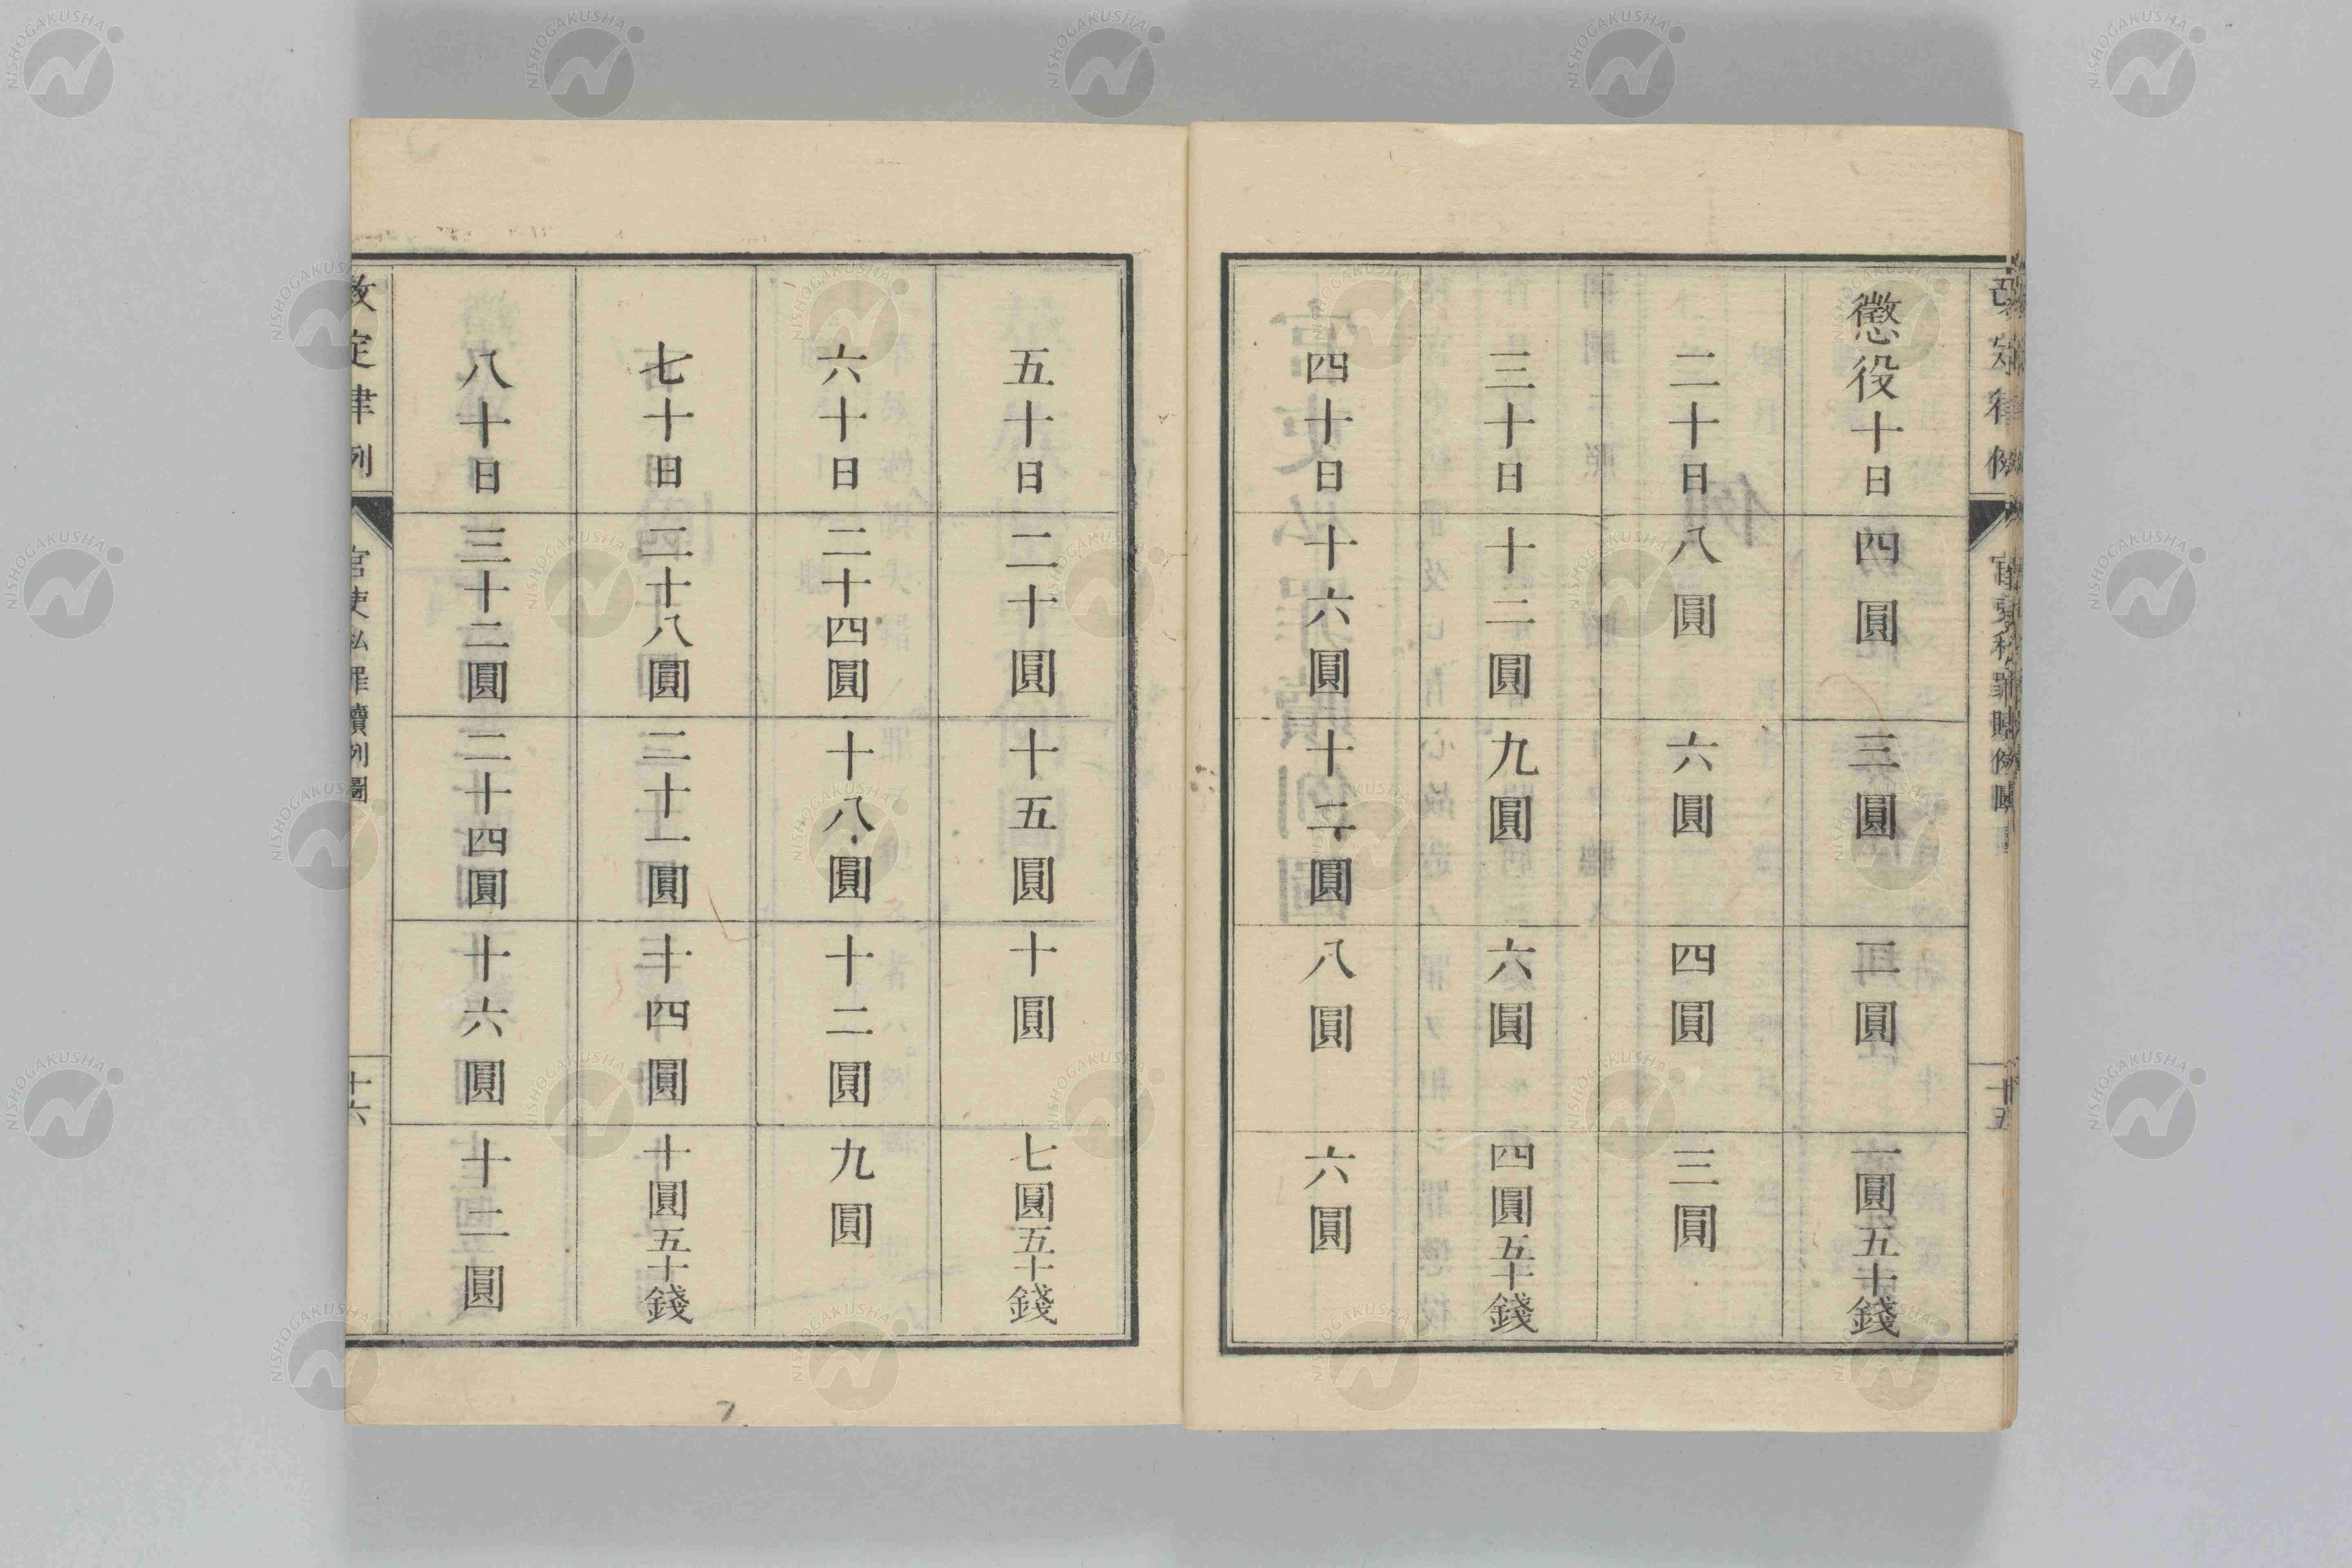 懲役十日 四圓 三圓 二圓 一圓五十錢
二十日 八圓 六圓 四圓 三圓
三十日 十二圓 九圓 六圓 四圓五十錢
四十日 十六圓 十二圓 八圓 六圓
五十日 二十圓 十五圓 十圓 七圓五十錢
六十日 二十四圓 十八圓 十二圓 九圓
七十日 二十八圓 二十一圓 十四圓 十圓五十錢
八十日 三十二圓 二十四圓 十六圓 十二圓
改定律例 官吏私罪贖例圖 十六
NISHOGAKUSHA